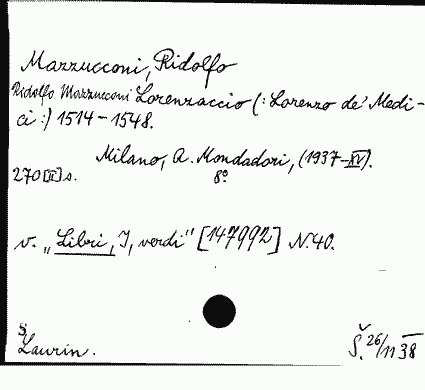 Mazzucconi, Ridolfo
Ridolfo Mazzucconi Lorenzaccio (: Lorenzo de' Medi-
ci :) 1514-1548.
Milano, A. Mondadori, (1937-XV).
270 [II] s. 8°
v. „Libri, I, verdi" [147992] N.40.
Laurin.
Š. 26/11 38